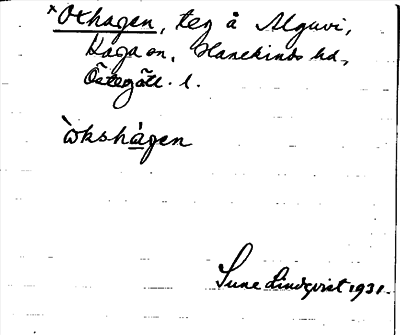 × Oxhagen, teg å Alguvi,
Kaga sn, Hanekinds hd,
Östergötl. l.
òkshàgen
Sune Lindqvist 1931.